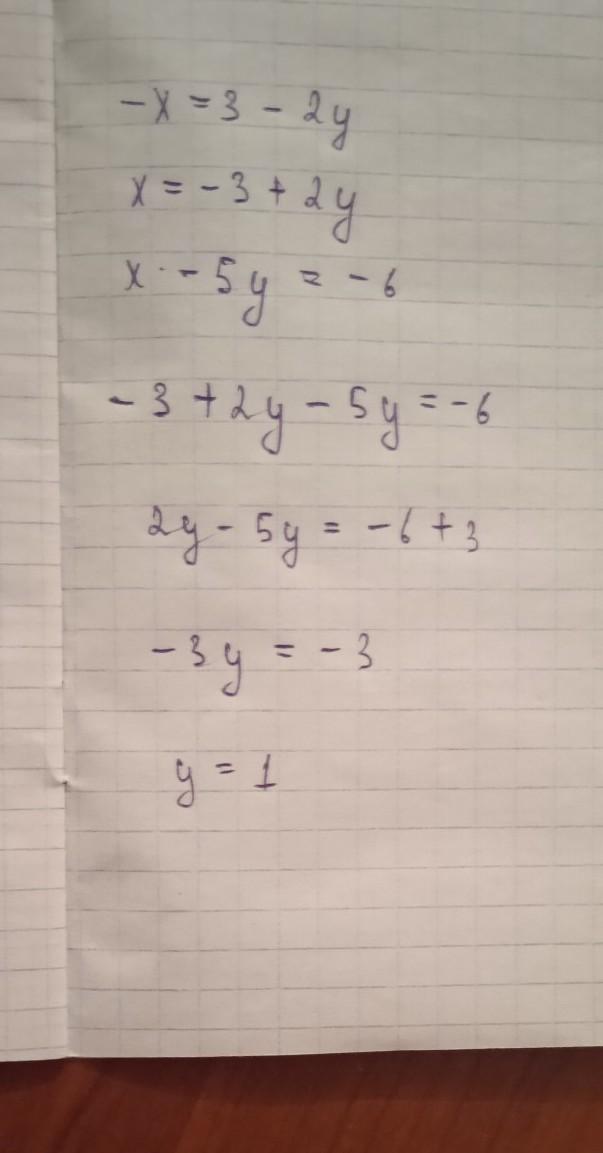 -x = 3 - 2y
x = -3 + 2y
x - 5y = -6
-3 + 2y - 5y = -6
2y - 5y = -6 + 3
-3y = -3
y = 1